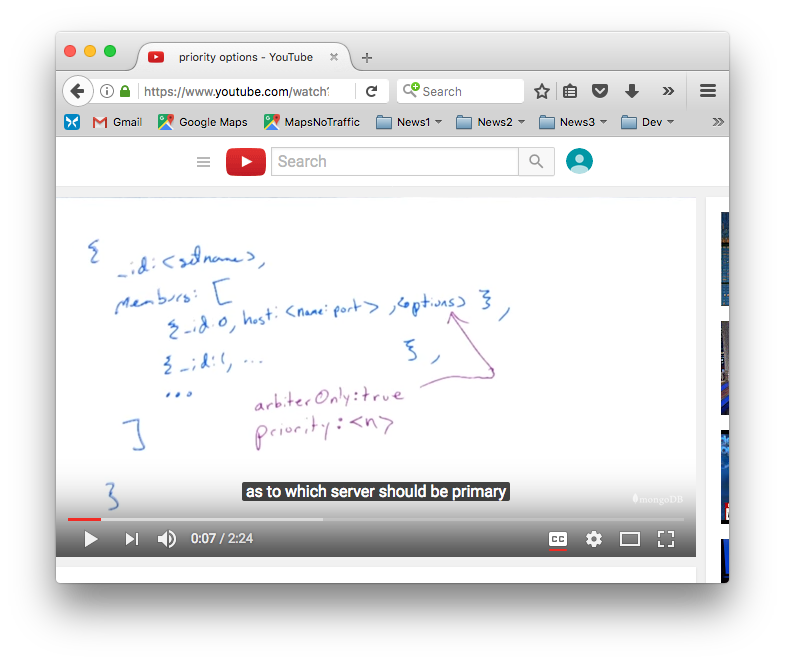 priority options - YouTube
https://www.youtube.com/watch?
Search
Gmail
Google Maps
MapsNoTraffic
News1
News2
News3
Dev
Search
{
_id: <setname>,
members: [
{_id:0, host: <name:port> , <options> },
{_id:1, ... },
...
arbiterOnly:true
priority:<n>
]
}
as to which server should be primary
mongoDB
0:07 / 2:24
CC